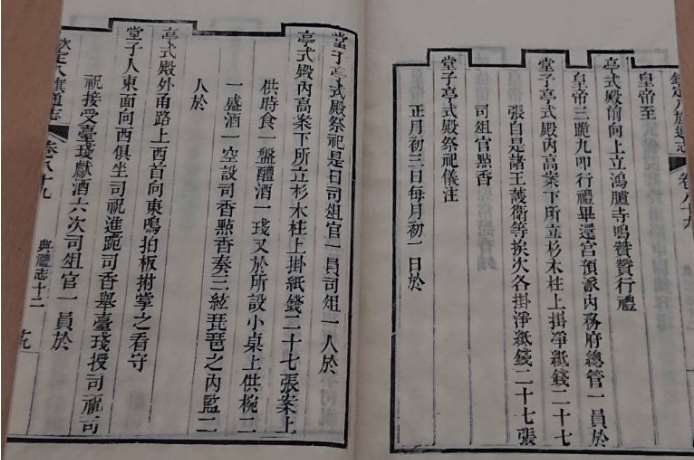 欽定八旗通志 卷八十九
皇帝至
亭式殿前向上立鴻臚寺鳴贊贊行禮
皇帝三跪九叩行禮畢還宮預派內務府總管一員於
堂子亭式殿內高案下所立杉木柱上掛淨紙錢二十七
張自是諸王護衛等挨次各掛淨紙錢二十七張
司俎官點香
堂子亭式殿祭祀儀注
正月初三日每月初一日於
堂子亭式殿祭祀是日司俎官一員司俎一人於
亭式殿內高案下所立杉木柱上掛紙錢二十七張案上
供時食一盤醴酒一琖又於所設小桌上供椀二
一盛酒一空設司香點香奏三絃琵琶之內監二
人於
亭式殿外甬路上西首向東鳴拍板拊掌之看守
堂子人東面向西俱坐司祝進跪司香舉臺琖授司祝司
祝接受臺琖獻酒六次司俎官一員於
欽定八旗通志 卷八十九 典禮志十二